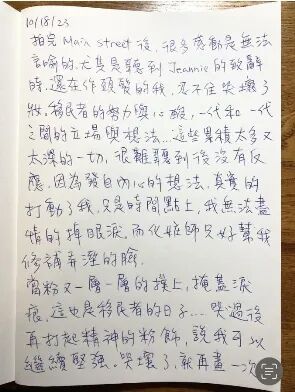 10/18/23
拍完 Main street 後，很多感動是無法
言喻的，尤其是聽到 Jeannie 的致辭
時，還在作頭髮的我，忍不住哭壞了
妝，移民者的努力與心酸，一代和一代
之間的立場與想法...這些累積太多又
太深的一切，很難聽到後沒有反
應，因為發自內心的想法，真實的
打動了我，只是時間點上，我無法盡
情的掉眼淚，而化妝師只好幫我
修補弄溼的臉。
當粉又一層一層的撲上，掩蓋淚
痕，這也是移民者的日子...哭過後
再打起精神的粉飾，說我可以
繼續堅強。哭壞了，就再畫一次